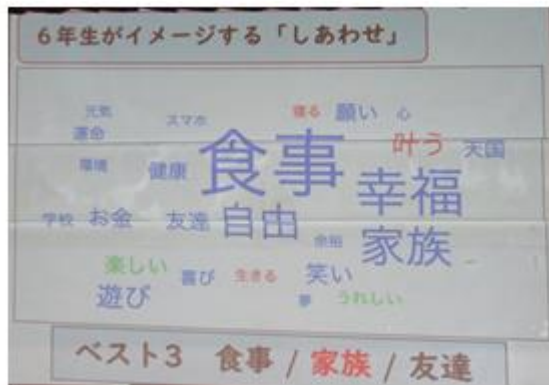 6年生がイメージする「しあわせ」
元気 スマホ 寝る 願い 心
運命 食事 叶う 天国
環境 健康 幸福
学校 お金 友達 自由 余裕 家族
楽しい 喜び 生きる 笑い
遊び 夢 うれしい
ベスト3 食事 / 家族 / 友達